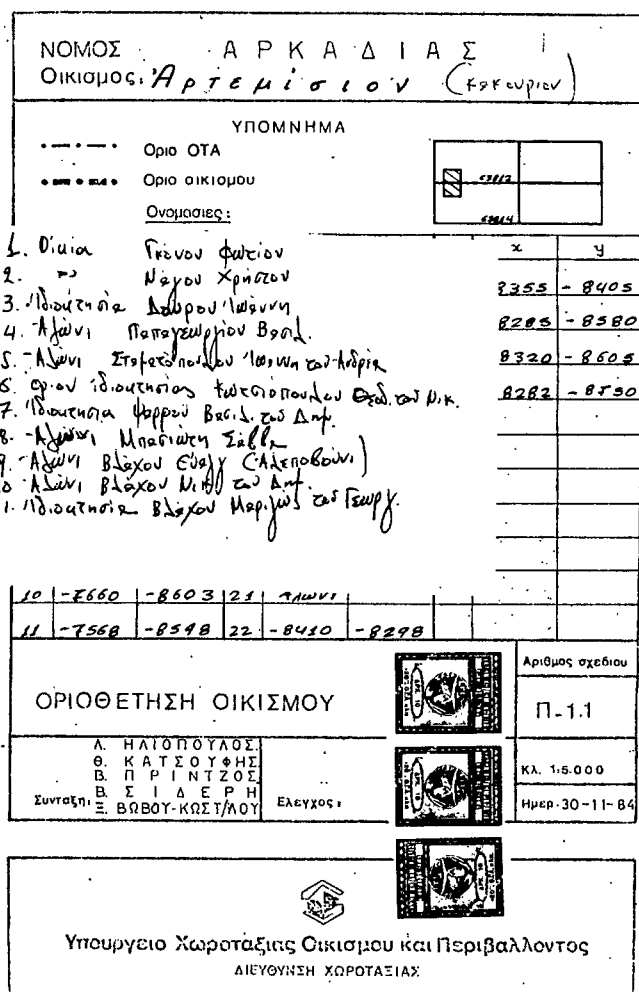 ΝΟΜΟΣ ΑΡΚΑΔΙΑΣ
Οικισμος: Ἀρτεμίσιον (Κακουριον)
ΥΠΟΜΝΗΜΑ
Οριο ΟΤΑ
Οριο οικισμου
Ονομασιες:
x y
1. Οἰκία Γκένου Φωτίου
2. " Νάγου Χρήστου
3. Ἰδιοκτησία Λαύρου Ἰωάννη 8355 -8405
4. Ἁλώνι Παπαγεωργίου Βασιλ. 8285 -8580
5. Ἁλώνι Σταματοπούλου Ἰωάννη τοῦ Ἀνδρέα 8320 -8605
6. Ὅριον ἰδιοκτησίας Θεοδ. τοῦ Νικ. 8282
7. Ἰδιοκτησία Βασιλ. τοῦ Δημ.
8. Ἁλώνι Μπασιώτη Σάββα
9. Ἁλώνι Βλάχου Εὐαγγ (Ἀλεποβούνι)
0 Ἁλώνι Βλάχου Νικ τοῦ Δημ.
1. Ἰδιοκτησία Βλάχου Μαριγώς τοῦ Γεωργ.
10 -7660 -8603 21
11 -7568 -8598 22 -8410 -8298
ΟΡΙΟΘΕΤΗΣΗ ΟΙΚΙΣΜΟΥ
Αριθμος σχεδιου
Π-1.1
Συνταξη:
Λ. ΗΛΙΟΠΟΥΛΟΣ
Θ. ΚΑΤΣΟΥΦΗΣ
Β. ΠΡΙΝΤΖΟΣ
Β. ΣΙΔΕΡΗ
Ξ. ΒΩΒΟΥ-ΚΩΣΤ/ΛΟΥ
Ελεγχος:
Κλ. 1:5.000
Ημερ. 30-11-84
Υπουργειο Χωροταξιας Οικισμου και Περιβαλλοντος
ΔΙΕΥΘΥΝΣΗ ΧΩΡΟΤΑΞΙΑΣ